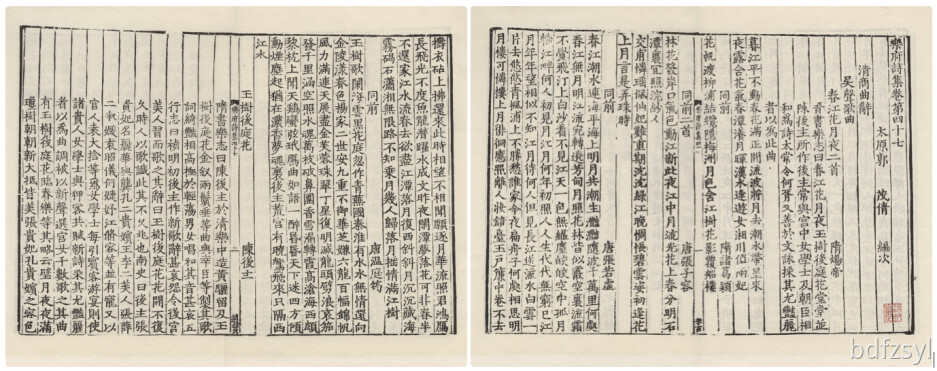 樂府詩集卷第四十七
太原郭 茂倩 編次
清商曲辭
吳聲歌曲
春江花月夜二首 隋煬帝
晉書樂志曰春江花月夜玉樹後庭花堂堂並
陳後主所作後主常與宮中女學士及朝臣相
和為詩太常令何胥又善於文詠採其尤豔麗
者以為此曲
暮江平不動春花滿正開流波將月去潮水帶星來
夜露含花氣春潭瀁月暉漢水逢遊女湘川值兩妃
同前 隋諸葛穎
花帆渡柳浦結纜隱梅洲月色含江樹花影覆船樓
同前二首 唐張子容
林花發岸口氣色動江新此夜江中月流光花上春分明石
潭裏宜照浣紗人
交甫憐瑤珮仙妃難重期沉沉綠江晚惆悵碧雲姿初逢花
上月言是弄珠時
同前 唐張若虛
春江潮水連海平海上明月共潮生灩灩隨波千萬里何處
春江無月明江流宛轉遶芳甸月照花林皆似霰空裏流霜
不覺飛汀上白沙看不見江天一色無纖塵皎皎空中孤月
輪江畔何人初見月江月何年初照人人生代代無窮已江
月年年望相似不知江月待何人但見長江送流水白雲一
片去悠悠青楓浦上不勝愁誰家今夜扁舟子何處相思明
月樓可憐樓上月徘徊應照離人妝鏡臺玉戶簾中卷不去
擣衣砧上拂還來此時相望不相聞願逐月華流照君鴻鴈
長飛光不度魚龍潛躍水成文昨夜閑潭夢落花可憐春半
不還家江水流春去欲盡江潭落月復西斜斜月沉沉藏海
霧碣石瀟湘無限路不知乘月幾人歸落月搖情滿江樹
同前 唐溫庭筠
玉樹歌闌海雲黑花庭忽作青蕪國秦淮有水水無情還向
金陵漾春色楊家二世安九重不御華芝嫌六龍百幅錦帆
風力滿連天展盡金芙蓉珠翠丁星復明滅龍頭劈浪哀笳
發千里涵空照水魂萬枝破鼻團香雪漏轉霞高滄海西頗
黎枕上聞天鷄蠻弦代寫曲如語一醉昏昏天下迷四方傾
動煙塵起猶在濃香夢魂裏後主荒宮有曉鶯飛來只隔西
江水
玉樹後庭花 陳後主
隋書樂志曰陳後主於清樂中造黃驪留及玉
樹後庭花金釵兩鬢垂等曲與幸臣等製其歌
詞綺豔相高極於輕蕩男女唱和其音甚哀五
行志曰禎明初後主作新歌辭甚哀怨令後宮
美人習而歌之其辭曰玉樹後庭花花開不復
久時人以歌讖此其不久兆也南史曰後主張
貴妃名麗華與龔孔二貴嬪王李二美人張薛
二淑媛袁昭儀何婕妤江脩容等並有寵又以
宮人袁大捨等為女學士每引賓客遊宴則使
諸貴人女學士與狎客共賦新詩采其尤豔麗
者以為曲調被以新聲選宮女千數歌之其曲
有玉樹後庭花臨春樂等其略云璧月夜夜滿
瓊樹朝朝新大抵皆美張貴妃孔貴嬪之容色
bdfzsyl